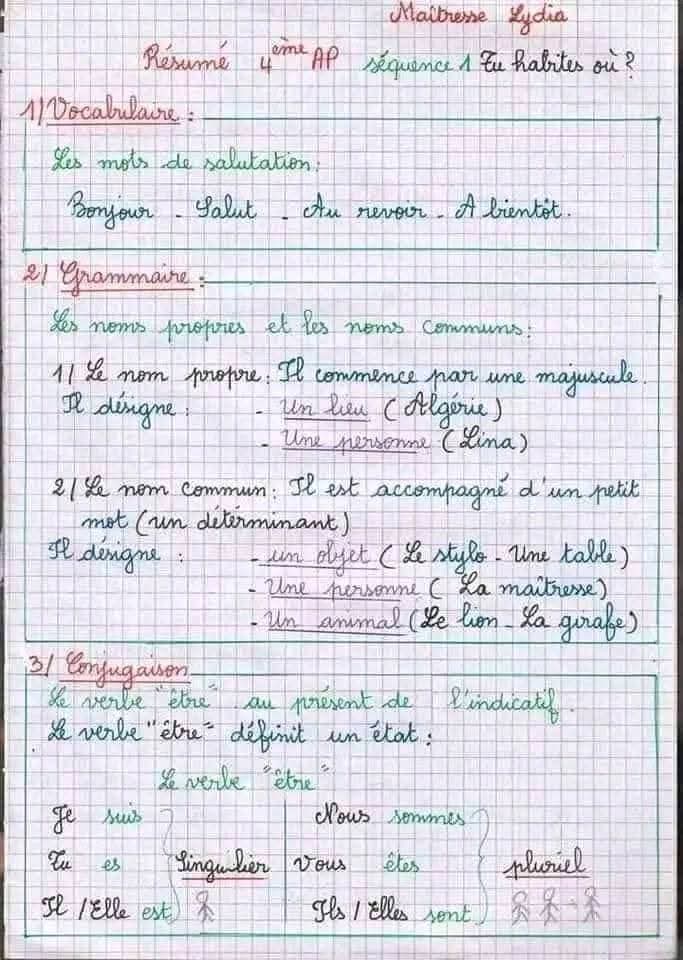 Maîtresse Lydia
Résumé 4ème AP séquence 1 Tu habites où ?
1/ Vocabulaire :
Les mots de salutation :
Bonjour - Salut - Au revoir - A bientôt.
2/ Grammaire :
Les noms propres et les noms communs :
1/ Le nom propre : Il commence par une majuscule.
Il désigne : - Un lieu (Algérie)
- Une personne (Lina)
2/ Le nom commun : Il est accompagné d'un petit
mot (un déterminant)
Il désigne : - un objet (Le stylo - Une table)
- Une personne (La maîtresse)
- Un animal (Le lion - La girafe)
3/ Conjugaison
Le verbe "être" au présent de l'indicatif.
Le verbe "être" définit un état :
Le verbe "être"
Je suis Nous sommes
Tu es Singulier Vous êtes pluriel
Il / Elle est Ils / Elles sont